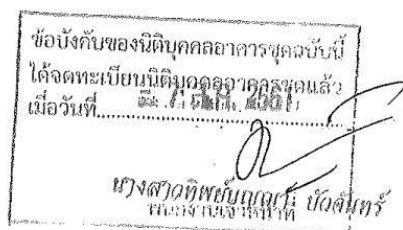 ข้อบังคับของนิติบุคคลอาคารชุดฉบับนี้
ได้จดทะเบียนนิติบุคคลอาคารชุดแล้ว
เมื่อวันที่ 2561
นางสาวทิพย์บุญญา บัวจันทร์
พนักงานเจ้าหน้าที่